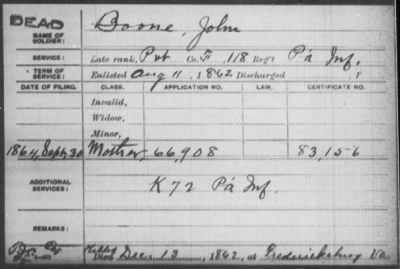 DEAD
NAME OF SOLDIER: Boone, John
SERVICE: Late rank, Pvt Co. F, 118 Reg't Pa Inf.
TERM OF SERVICE: Enlisted Aug 11, 1862 Discharged
DATE OF FILING. CLASS. APPLICATION NO. LAW. CERTIFICATE NO.
Invalid,
Widow,
Minor,
1864, Sept 30 Mother, 66,908 83,156
ADDITIONAL SERVICES: K 72 Pa Inf.
REMARKS:
Killed Dec 13, 1862, at Fredericksburg Va